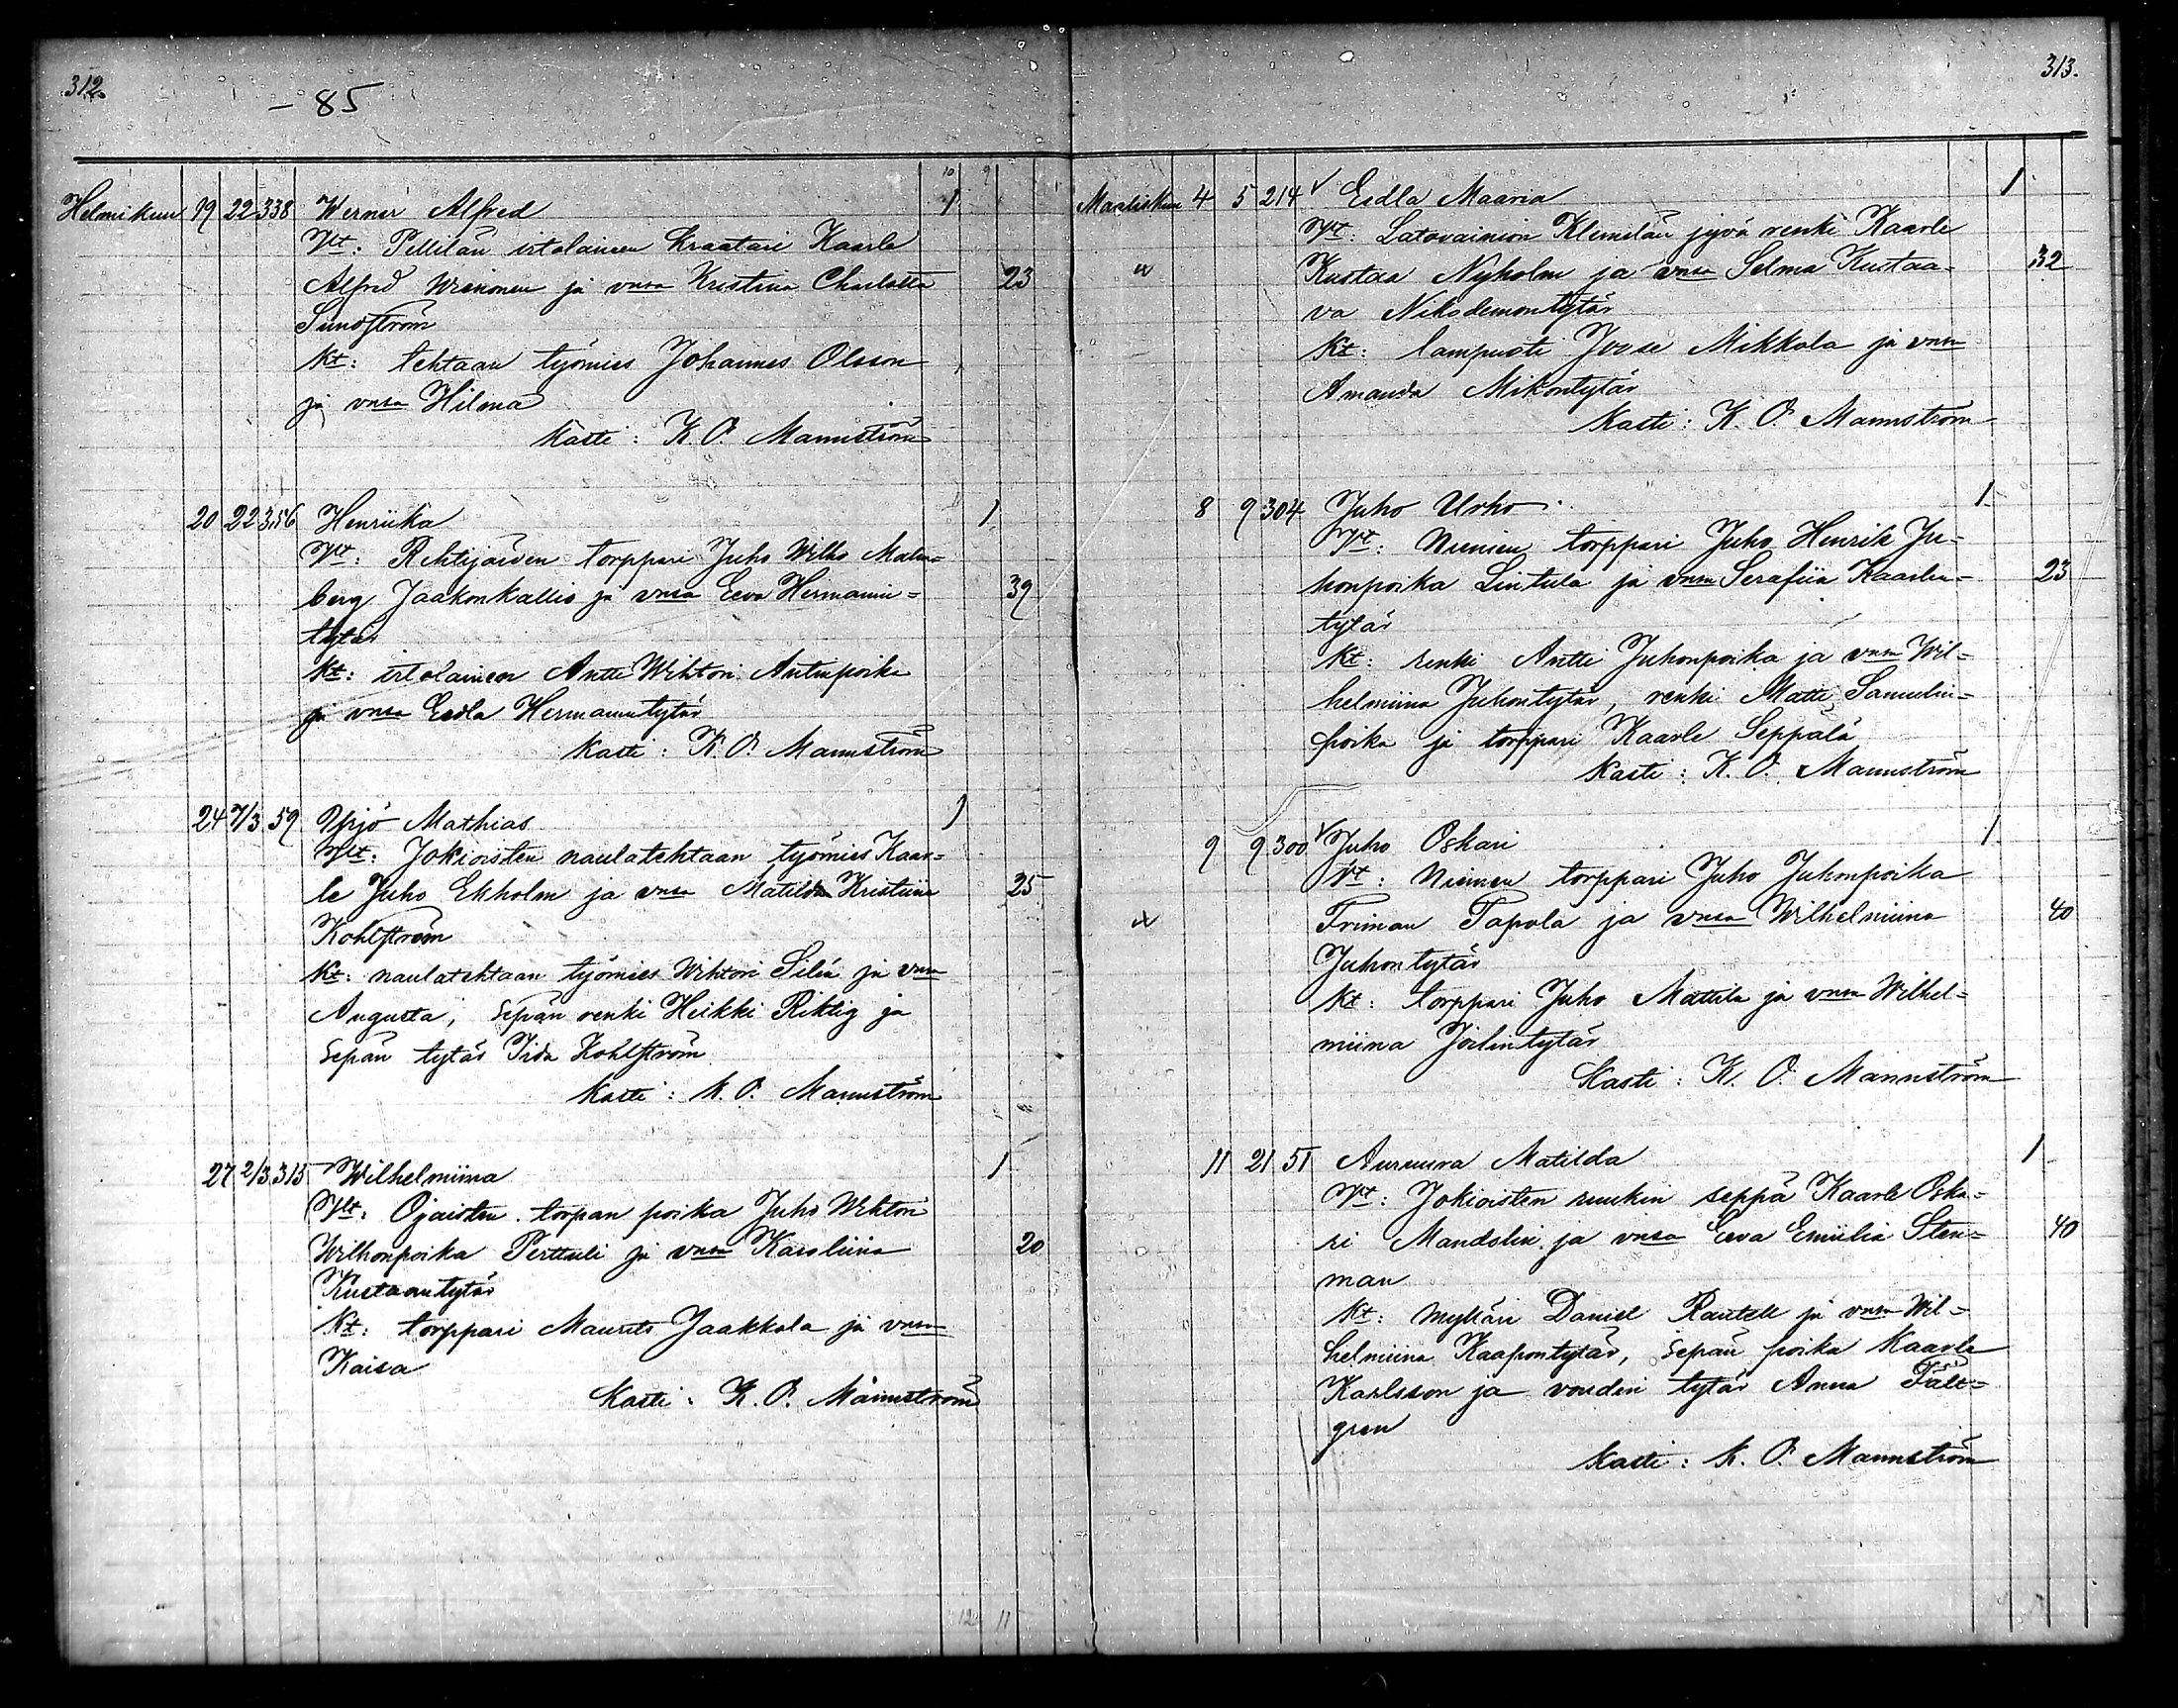 312.
- 85
Helmikuu 19 22 338 Werner Alfred 1
Vt: Pellilän irtolainen kraatari Kaarle
Alfred Weinonen ja vmsa Kristina Charlotta 23
Sundström
Kt: tehtaan työmies Johannes Olsson
ja vmsa Hilma
Kasti: K. O. Mannström
20 22 356 Henriika 1
Vt: Rehtijärven torppari Juho Wilho Malm=
berg Jaakonkallio ja vmsa Eeva Hermannin= 39
tytär
Kt: irtolainen Antti Wihtori Antinpoika
ja vmsa Eedla Hermannintytär
Kasti: K. O. Mannström
24 7/3 59 Yrjö Mathias 1
Vt: Jokioisten naulatehtaan työmies Kaar=
le Juho Ekholm ja vmsa Matilda Kristiina 25
Kohlström
Kt: naulatehtaan työmies Wihtori Silén ja vmsa
Augusta, Sepän renki Heikki Riktig ja
Sepän tytär Iida Kohlström
Kasti: K. O. Mannström
27 2/3 315 Wilhelmiina 1
Vt: Ojaisten torpan poika Juho Wihtori
Wilhonpoika Perttuli ja vmsa Karoliina 20
Kustaantytär
Kt: torppari Maurits Jaakkola ja vmsa
Kaisa
Kasti: K. O. Mannström
12 11
313.
Maaliskuu 4 5 214 Eedla Maaria 1
Vt: Latovainion Klemelän jyvä renki Kaarle
Kustaa Nyholm ja vmsa Selma Kustaa= 32
va Nikodemontytär
Kt: lampuoti Joose Mikkola ja vmsa
Amanda Mikontytär
Kasti: K. O. Mannström
8 9 304 Juho Urho 1
Vt: Niemen torppari Juho Henrik Ju=
honpoika Lintula ja vmsa Serafiia Kaarlen= 23
tytär
Kt: renki Antti Juhonpoika ja vmsa Wil=
helmiina Juhontytär, renki Matti Samulin=
poika ja torppari Kaarle Seppälä
Kasti: K. O. Mannström
9 9 300 Juho Oskari 1
Vt: Niemen torppari Juho Juhonpoika
Friman Tapola ja vmsa Wilhelmiina 40
Juhontytär
Kt: torppari Juho Mattila ja vmsa Wilhel=
miina Joelintytär
Kasti: K. O. Mannström
11 21 51 Auruura Matilda 1
Vt: Jokioisten ruukin seppä Kaarle Oska=
ri Mandelin ja vmsa Eeva Emiilia Sten= 40
man
Kt: Mylläri Daniel Rautell ja vmsa Wil=
helmiina Kaapontytär, Sepän poika Kaarle
Karlsson ja voudin tytär Anna Fält=
gren
Kasti: K. O. Mannström